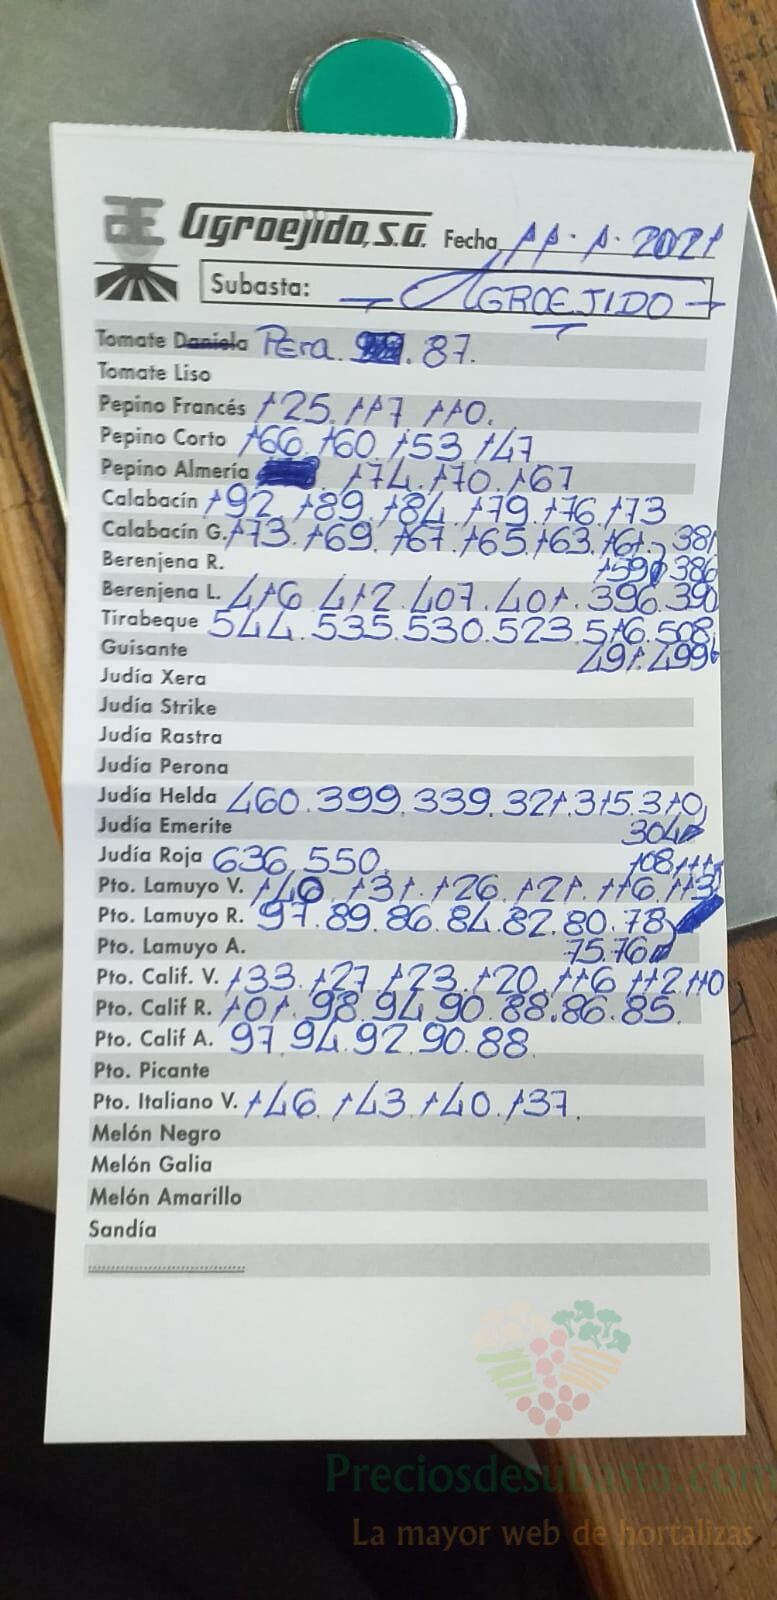 Agroejido, S.A. Fecha 11.1.2021
Subasta: AGROEJIDO
Tomate Daniela Pera. 87.
Tomate Liso
Pepino Francés 125. 117 110.
Pepino Corto 166 160 153 147
Pepino Almería 174. 170. 167
Calabacín 192 189 184 179 176 173
Calabacín G. 173. 169. 167. 165. 163. 161. 381
Berenjena R. 159 386
Berenjena L. 416 412. 407. 401. 396. 390
Tirabeque 544. 535. 530. 523. 516. 508.
Guisante 491. 499
Judía Xera
Judía Strike
Judía Rastra
Judía Perona
Judía Helda 460. 399. 339. 321. 315. 310
Judía Emerite 304
Judía Roja 636 550. 108.111
Pto. Lamuyo V. 140 131. 126. 121. 116. 113
Pto. Lamuyo R. 97. 89. 86. 84. 82. 80. 78
Pto. Lamuyo A. 75. 76
Pto. Calif. V. 133. 127 123. 120. 116 112. 110
Pto. Calif R. 101. 98. 94. 90. 88. 86. 85.
Pto. Calif A. 97. 94. 92. 90. 88
Pto. Picante
Pto. Italiano V. 146. 143. 140. 137.
Melón Negro
Melón Galia
Melón Amarillo
Sandía
Preciosdesubasta.com
La mayor web de hortalizas